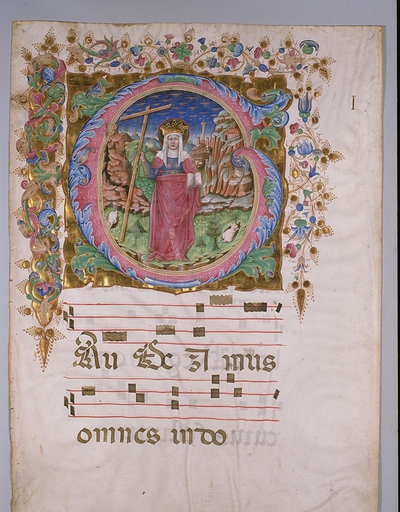 I
G
AU DE A mus
omnes in do